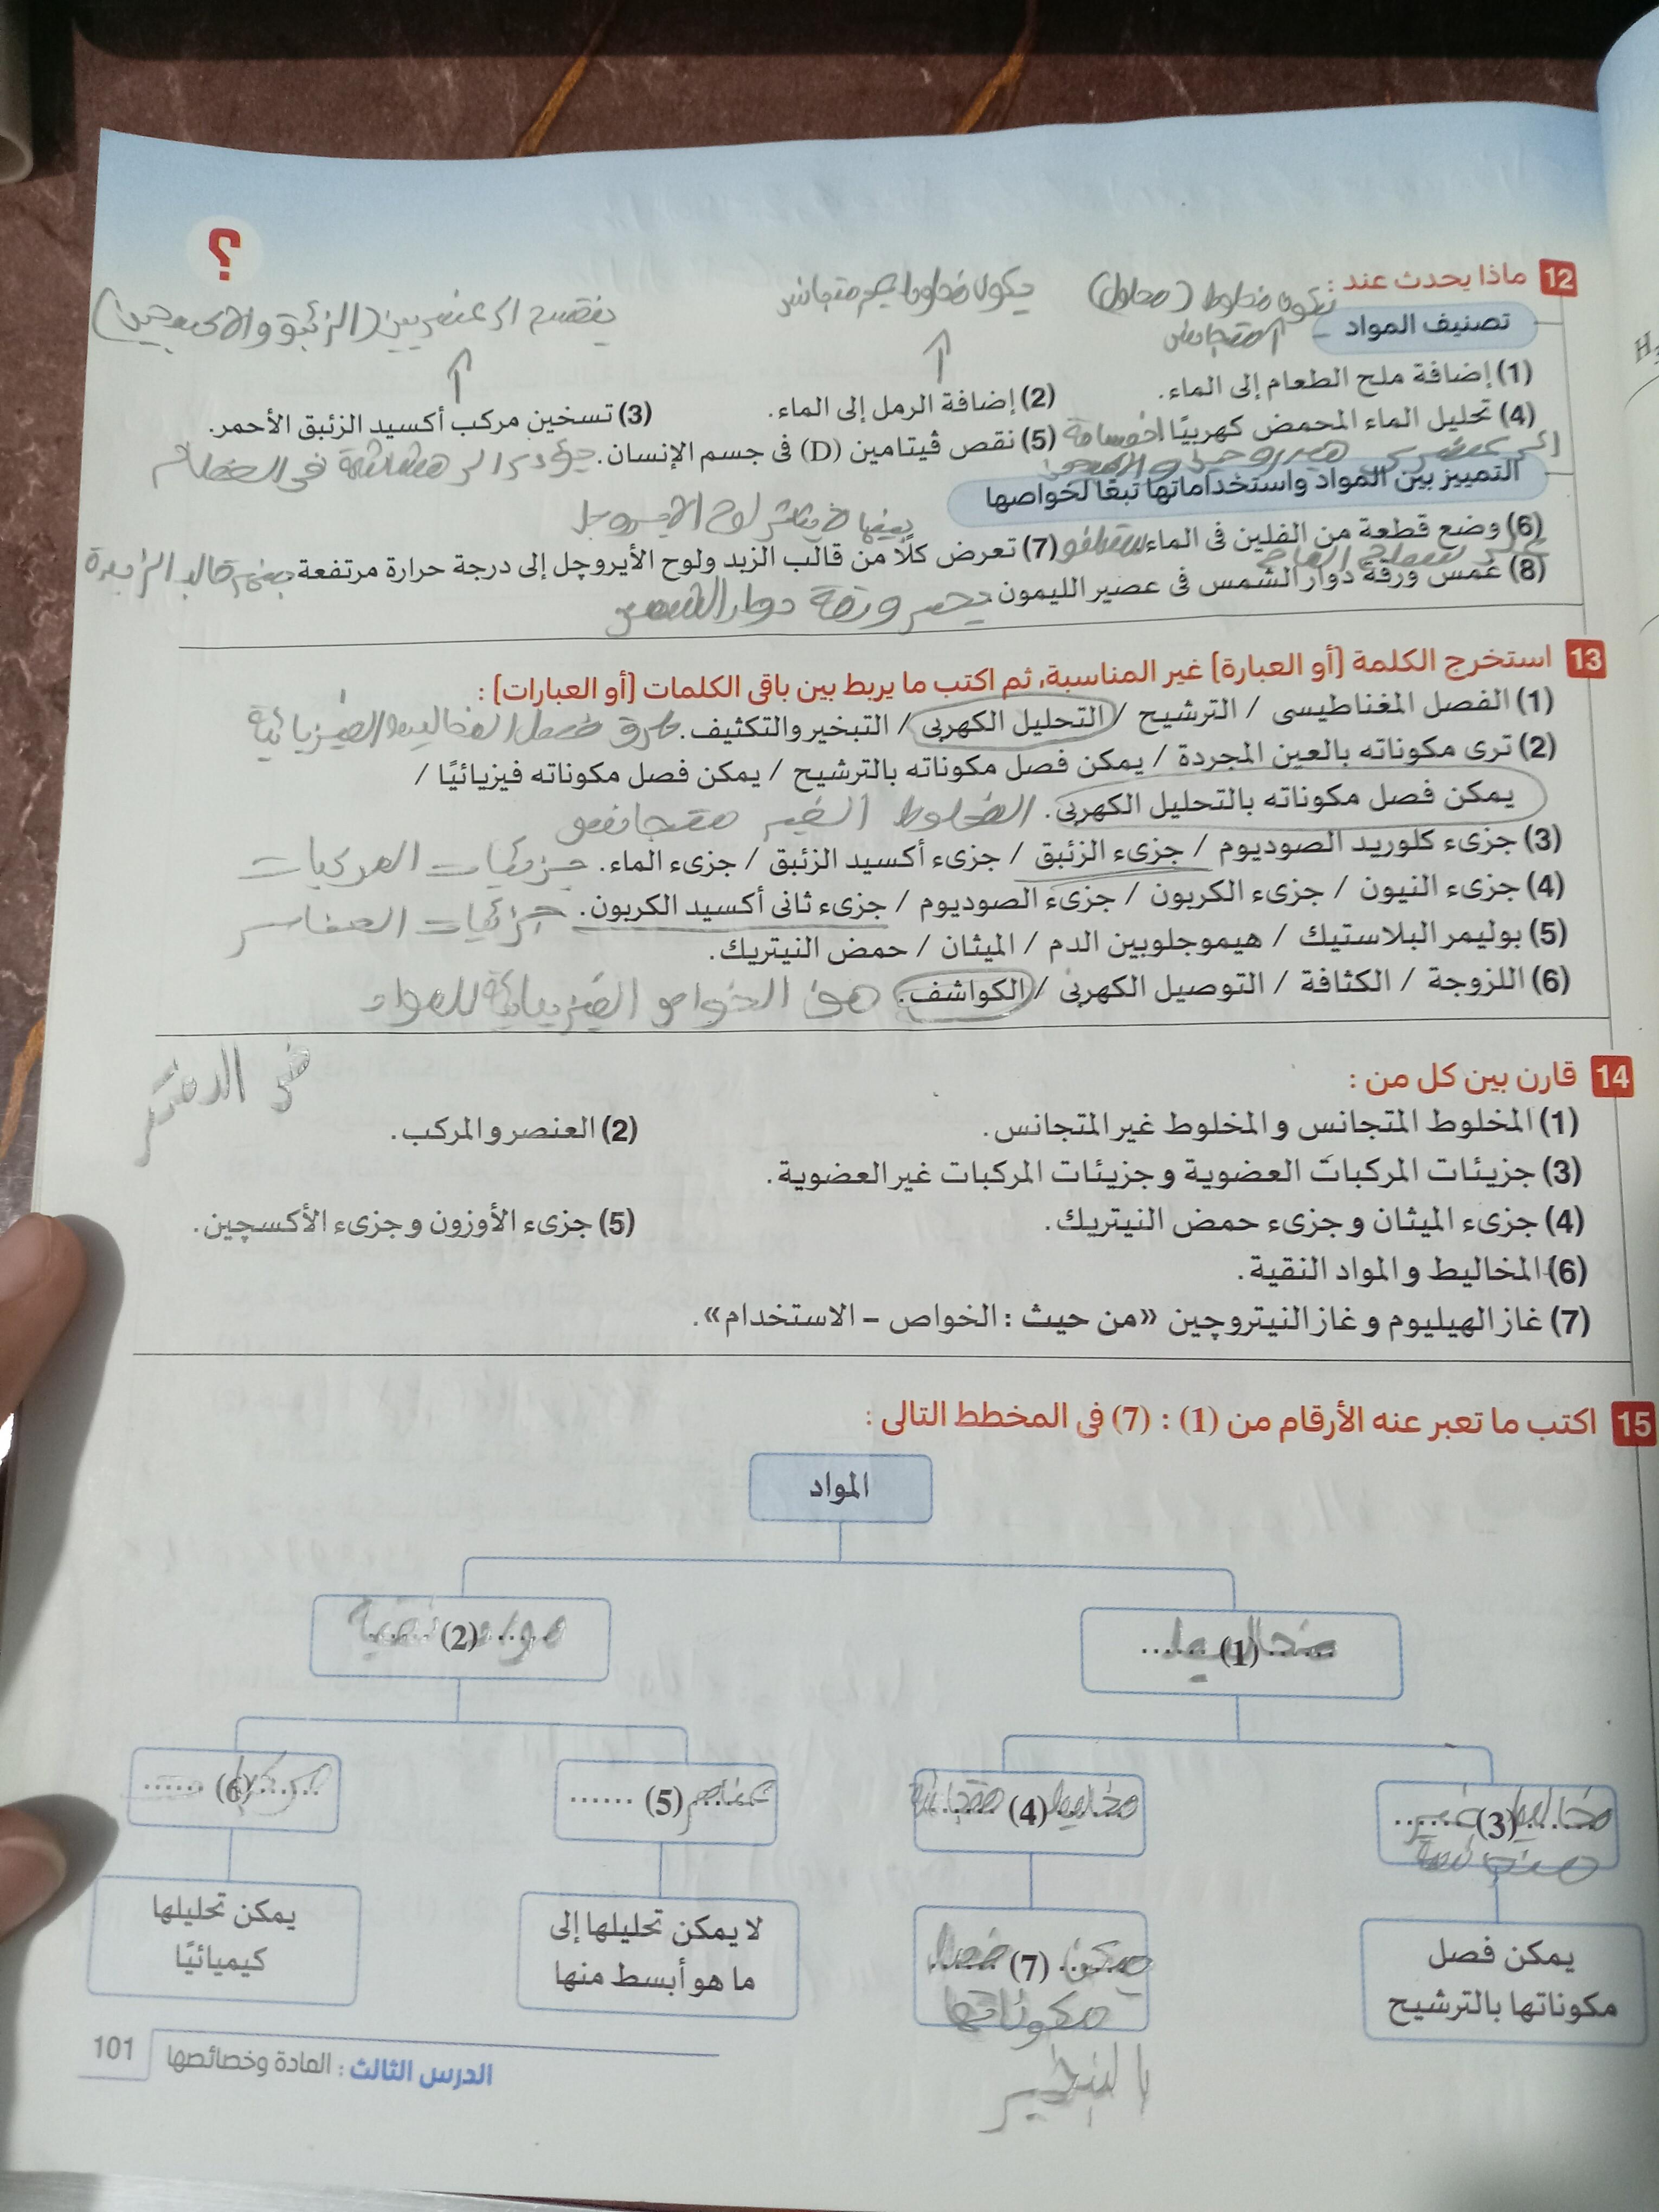 ؟
12 ماذا يحدث عند :
تكون مخلوط (محلول)
المتجانس
يكون مخلوط غير متجانس
تصنيف المواد
(1) إضافة ملح الطعام إلى الماء.
(2) إضافة الرمل إلى الماء.
(3) تسخين مركب أكسيد الزئبق الأحمر.
(4) تحليل الماء المحمض كهربيًا
(5) نقص ڤيتامين (D) فى جسم الإنسان.
التمييز بين المواد واستخداماتها تبعًا لخواصها
(6) وضع قطعة من الفلين فى الماء.
(7) تعرض كلًا من قالب الزبد ولوح الأيروچل إلى درجة حرارة مرتفعة
(8) غمس ورقة دوار الشمس فى عصير الليمون
ورقة دوار الشمس
13 استخرج الكلمة (أو العبارة) غير المناسبة، ثم اكتب ما يربط بين باقى الكلمات (أو العبارات) :
(1) الفصل المغناطيسى / الترشيح / التحليل الكهربى / التبخير والتكثيف. طرق فصل المخاليط الفيزيائية
(2) ترى مكوناته بالعين المجردة / يمكن فصل مكوناته بالترشيح / يمكن فصل مكوناته فيزيائيًا /
يمكن فصل مكوناته بالتحليل الكهربى. المخلوط الغير متجانس
(3) جزىء كلوريد الصوديوم / جزىء الزئبق / جزىء أكسيد الزئبق / جزىء الماء. جزيئات المركبات
(4) جزىء النيون / جزىء الكربون / جزىء الصوديوم / جزىء ثانى أكسيد الكربون. جزئيات العناصر
(5) بوليمر البلاستيك / هيموجلوبين الدم / الميثان / حمض النيتريك.
(6) اللزوجة / الكثافة / التوصيل الكهربى / الكواشف. من الخواص الفيزيائية للمواد
14 قارن بين كل من :
فى الدفتر
(1) المخلوط المتجانس والمخلوط غير المتجانس.
(2) العنصر والمركب.
(3) جزيئات المركبات العضوية وجزيئات المركبات غير العضوية.
(4) جزىء الميثان وجزىء حمض النيتريك.
(5) جزىء الأوزون وجزىء الأكسچين.
(6) المخاليط والمواد النقية.
(7) غاز الهيليوم وغاز النيتروچين «من حيث : الخواص – الاستخدام».
15 اكتب ما تعبر عنه الأرقام من (1) : (7) فى المخطط التالى :
المواد
(1) مخاليط
(2) مواد نقية
(3) مخاليط غير
متجانسة
(4) مخاليط متجانسة
(5) عناصر
(6) مركبات
يمكن فصل
مكوناتها بالترشيح
(7) يمكن فصل
مكوناتها
بالتبخير
لا يمكن تحليلها إلى
ما هو أبسط منها
يمكن تحليلها
كيميائيًا
الدرس الثالث : المادة وخصائصها
101